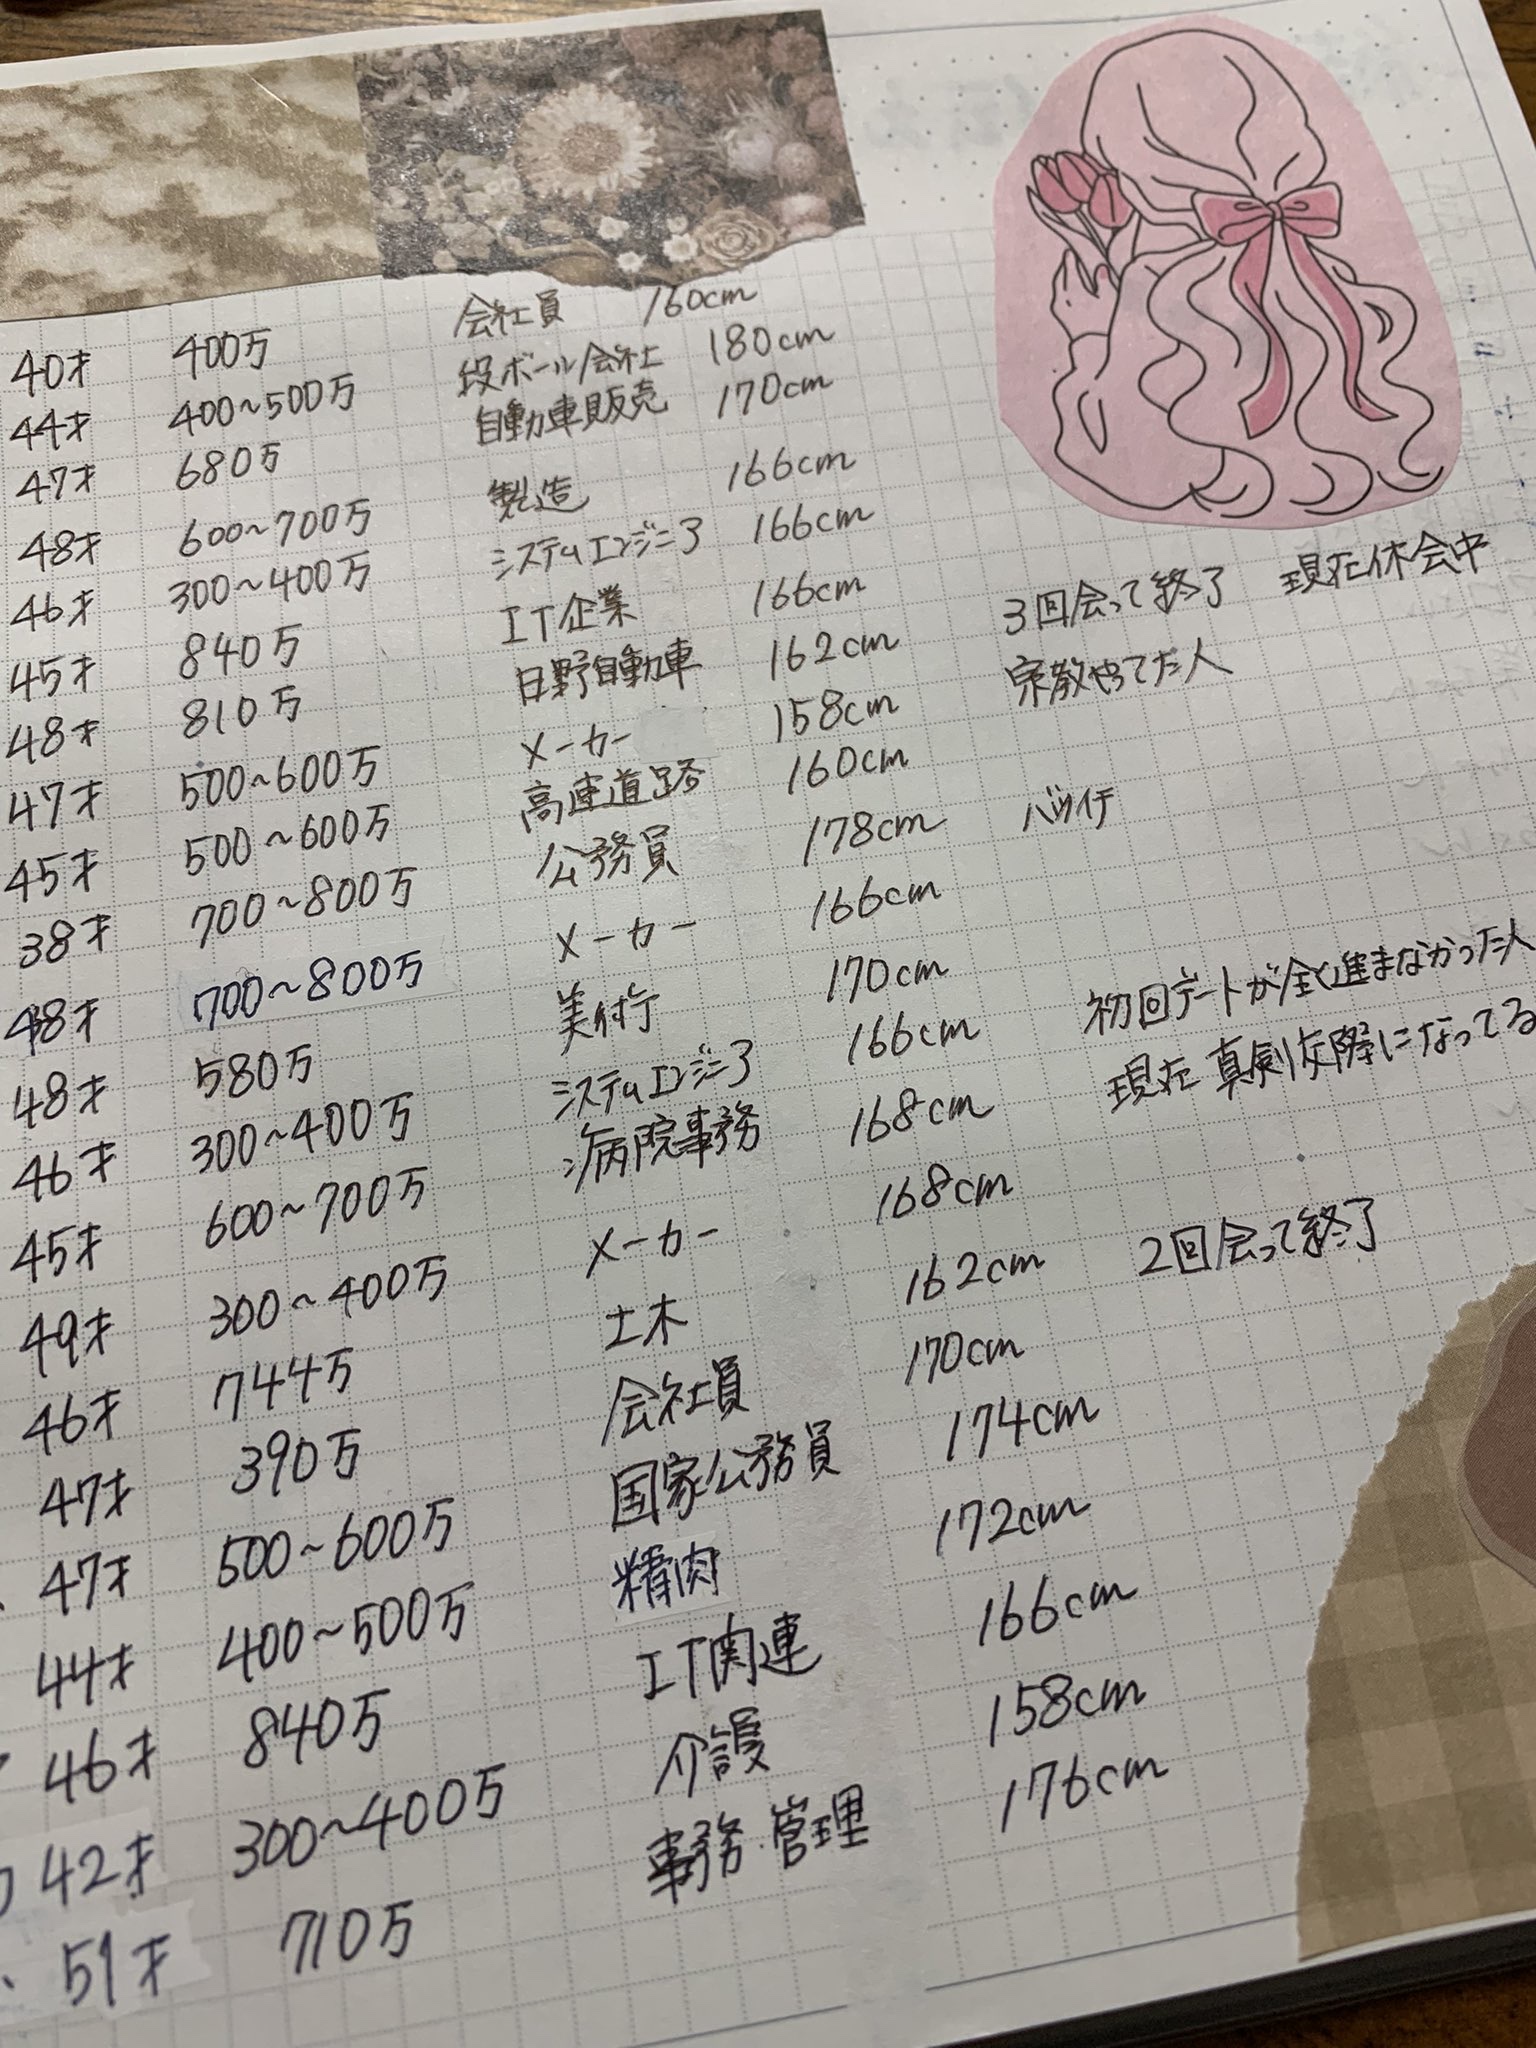 40才 400万 会社員 160cm
44才 400~500万 段ボール会社 180cm
47才 680万 自動車販売 170cm
48才 600~700万 製造 166cm
46才 300~400万 システムエンジニア 166cm
45才 840万 IT企業 166cm 3回会って終了 現在休会中
48才 810万 日野自動車 162cm 宗教やってた人
47才 500~600万 メーカー 158cm
45才 500~600万 高速道路 160cm
38才 700~800万 公務員 178cm バツイチ
48才 700~800万 メーカー 166cm
48才 580万 美術 170cm
46才 300~400万 システムエンジニア 166cm 初回デートが全く進まなかった人
45才 600~700万 病院事務 168cm 現在 真剣交際になってる
49才 300~400万 メーカー 168cm
46才 744万 土木 162cm 2回会って終了
47才 390万 会社員 170cm
47才 500~600万 国家公務員 174cm
44才 400~500万 精肉 172cm
46才 840万 IT関連 166cm
42才 300~400万 介護 158cm
51才 710万 事務・管理 176cm